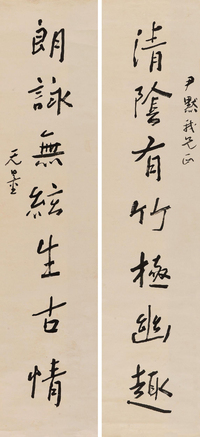 尹默我兄正
清陰有竹極幽趣
朗詠無絃生古情